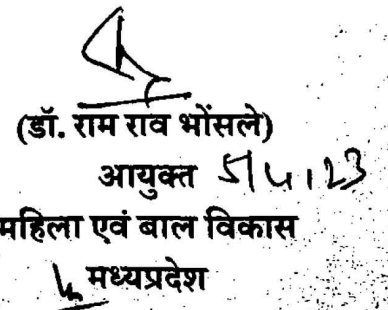 (डॉ. राम राव भोंसले)
आयुक्त 5/4/23
महिला एवं बाल विकास
मध्यप्रदेश